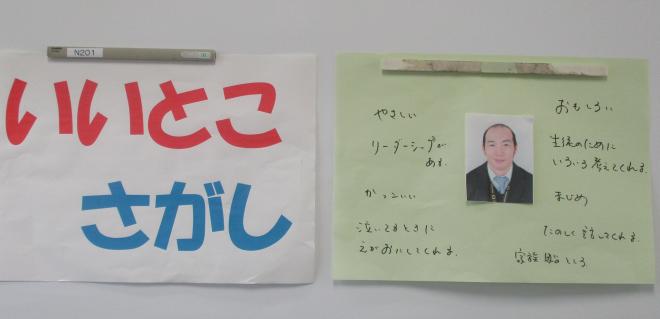 N201
いいとこ
さがし
やさしい
リーダーシップが
ある
かっこいい
泣いてるときに
えがおにしてくれる
おもしろい
生徒のために
いろいろ考えてくれる
まじめ
たのしく話してくれる
ところ